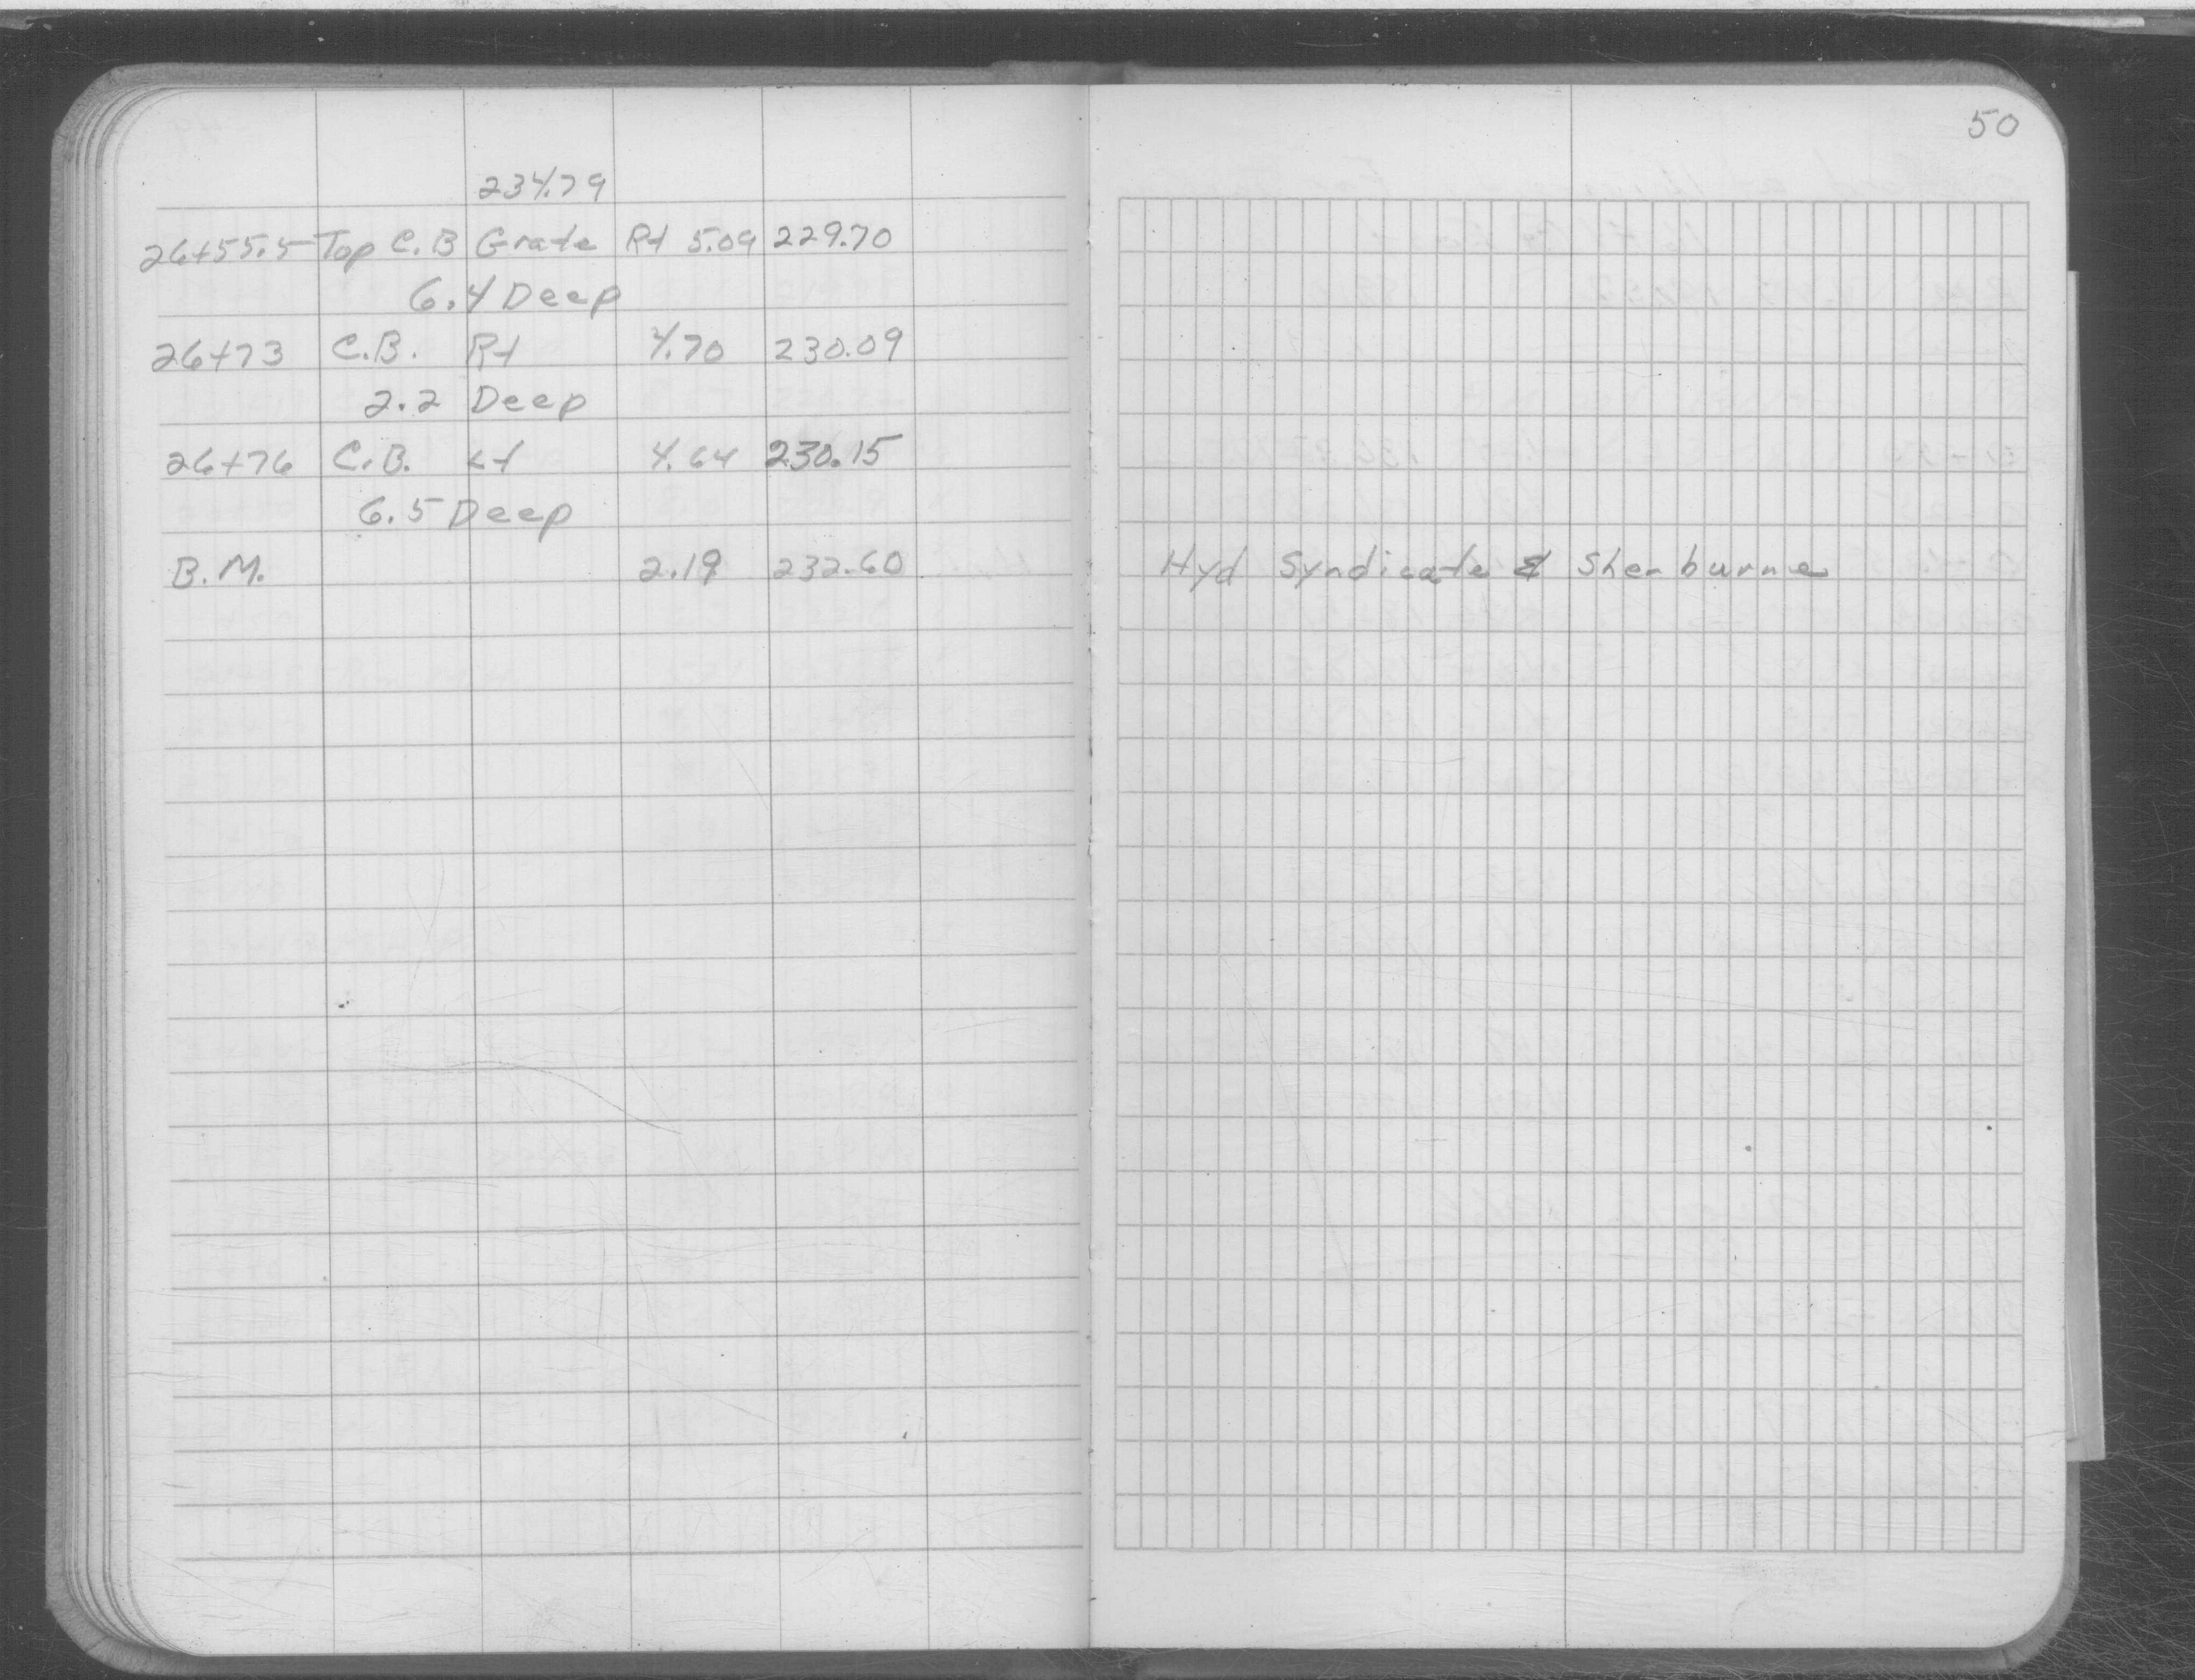 50
234.79
26+55.5 Top C.B Grate Rt 5.09 229.70
6.4 Deep
26+73 C.B. Rt 4.70 230.09
2.2 Deep
26+76 C.B. Lt 4.64 230.15
6.5 Deep
B.M. 2.19 232.60 Hyd Syndicate & Sherburne